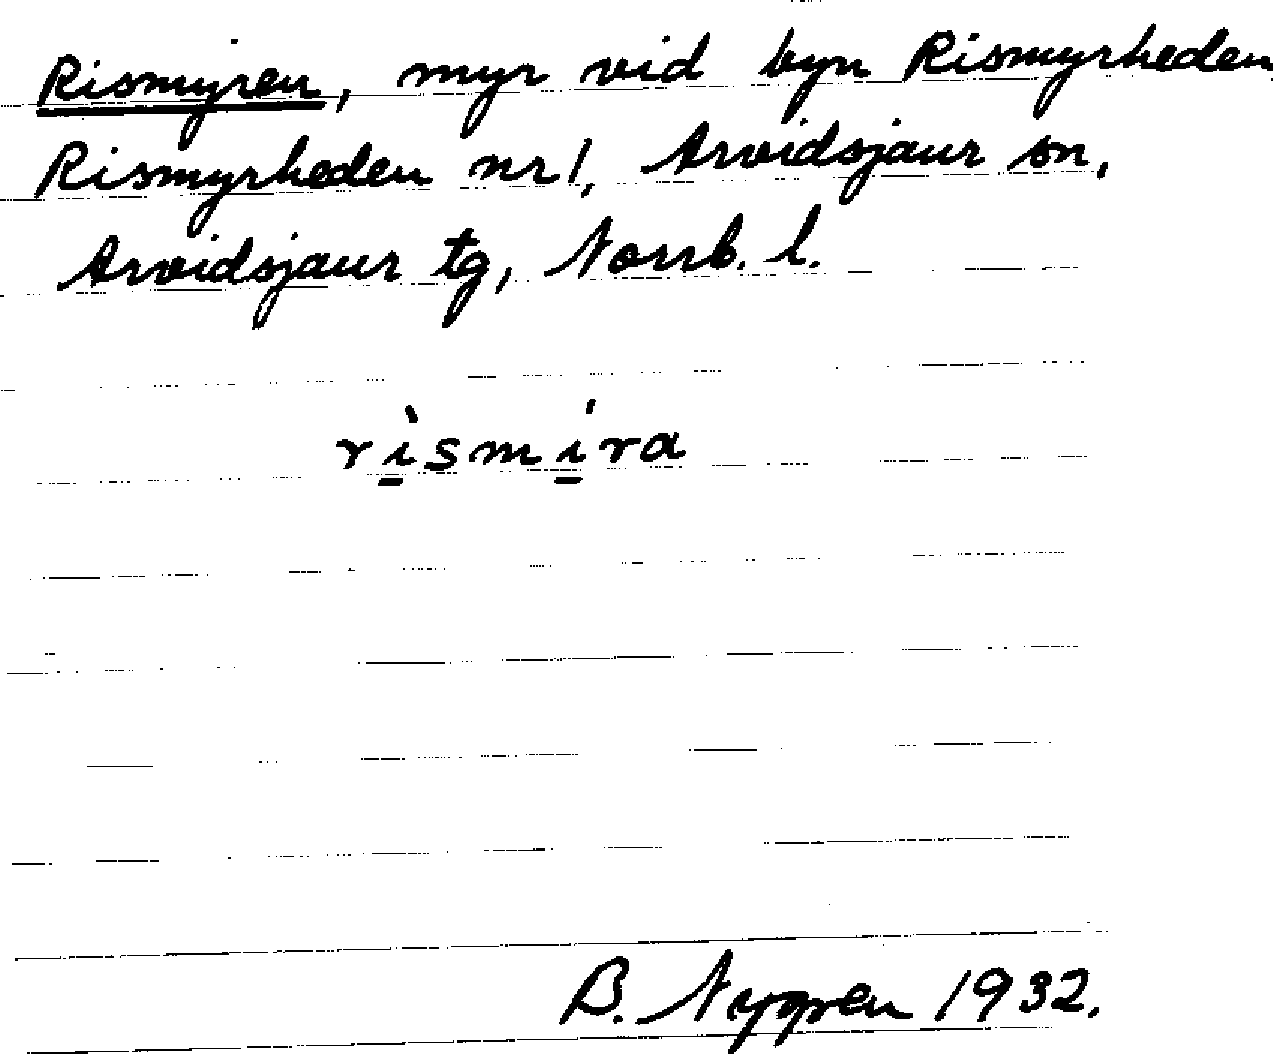 Rismyren, myr vid byn Rismyrheden
Rismyrheden nr 1, Arvidsjaur sn,
Arvidsjaur tg, Norrb. l.
rì̲smí̲ra
B. Nygren 1932.